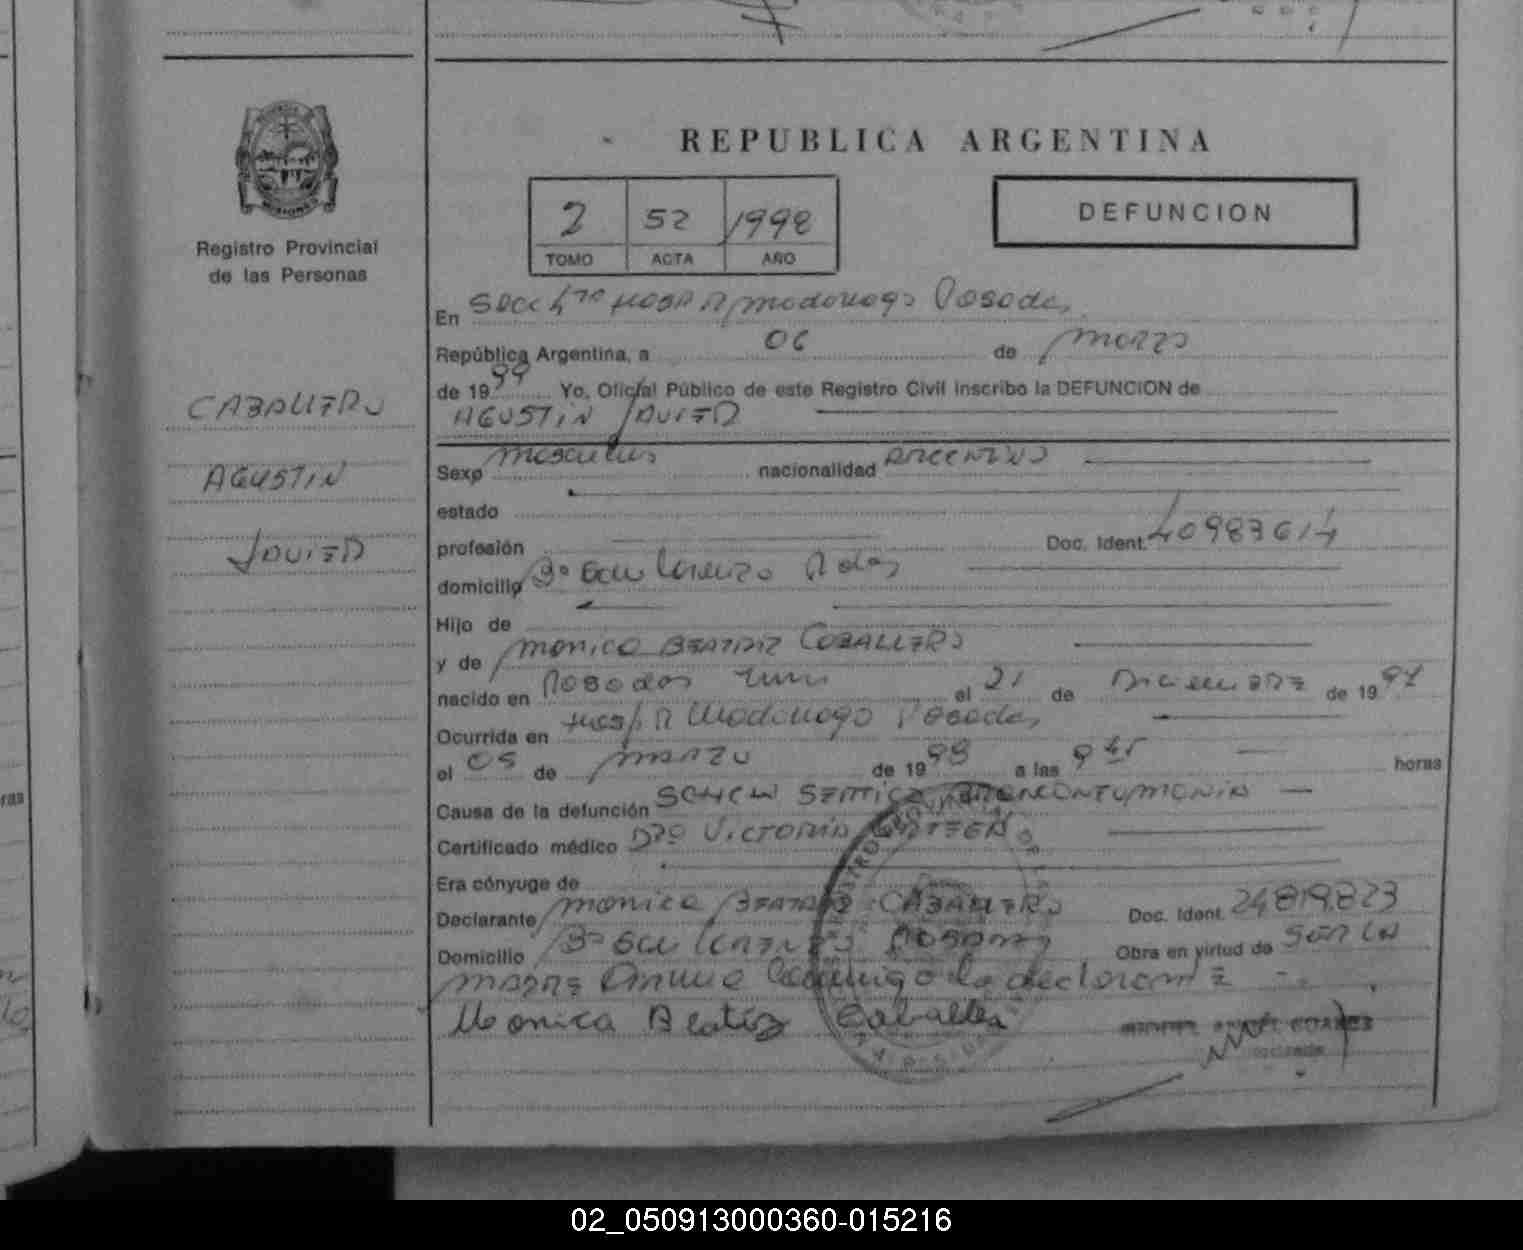 REPUBLICA ARGENTINA
2 52 1998
TOMO ACTA AÑO
DEFUNCION
Registro Provincial
de las Personas
CABALLERO
AGUSTIN
JAVIER
En Secc 4ta Hosp R Madariaga Posadas
República Argentina, a 06 de Marzo
de 19 Yo, Oficial Público de este Registro Civil inscribo la DEFUNCION de
AGUSTIN JAVIER
Sexo Masculino nacionalidad ARGENTINO
estado
profesión Doc. Ident. 40983614
domicilio Bº San Lorenzo Pdas
Hijo de
y de Monica BEATRIZ CABALLERO
nacido en Posadas el 21 de Diciembre de 1997
Ocurrida en Hosp R Madariaga Posadas
el 05 de MARZO de 1998 a las 9 horas
Causa de la defunción SHOCK SEPTICO BRONCONEUMONIA
Certificado médico Dra VICTORIA
Era cónyuge de
Declarante Monica BEATRIZ CABALLERO Doc. Ident. 24819823
Domicilio Bº San LORENZO POSADAS Obra en virtud de SER LA
MADRE Firma conmigo la declarante
Monica Beatriz Caballero
02_050913000360-015216